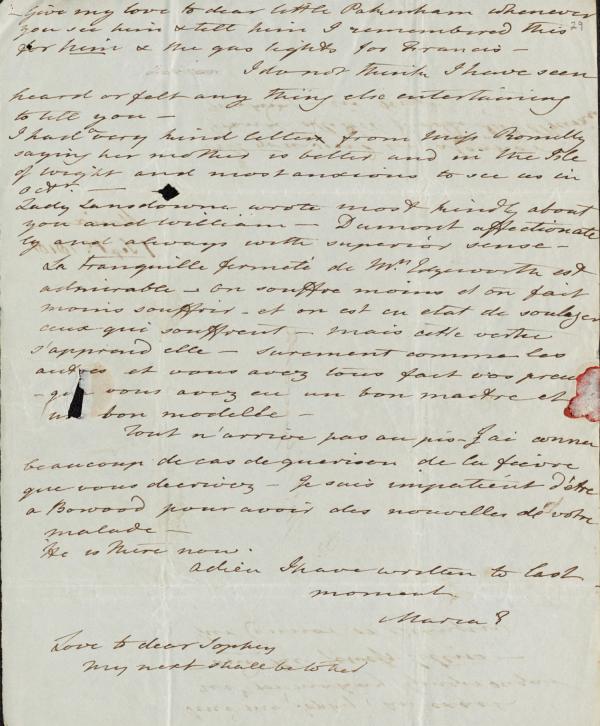 Give my love to dear little Pakenham whenever
you see him & tell him I remembered this
for him & the gas lights for Francis –
29
I do not think I have seen
heard or felt any thing else entertaining
to tell you –
I had a very kind letter from Miss Romilly
saying her mother is better and in the Isle
of Wight and most anxious to see us in
octr. –
Lady Lansdowne wrote most kindly about
you and William – Dumont affectionate
ly and always with superior sense –
La tranquille fermeté de Mrs Edgeworth est
admirable – on souffre moins et on fait
moins souffrir – et on est en etat de soulager
ceux qui souffrent – mais cette vertu
s'apprend elle – surement comme les
autres et vous avez tous fait vos preu
– que vous avez eu un bon maitre et
un bon modelle
Tout n'arrive pas au pis – J'ai connu
beaucoup de cas de guerison de la fievre
que vous decrivez – Je suis impatient d'être
a Bowood pour avoir des nouvelles de votre
malade –
He is there now.
adieu I have written to last
moment
Maria E
Love to dear Sophy
My next shall be to her